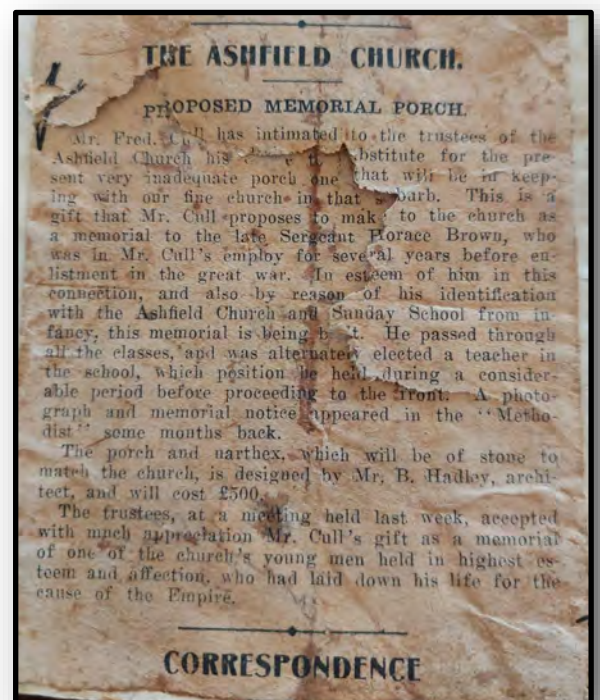 THE ASHFIELD CHURCH.
PROPOSED MEMORIAL PORCH.
Mr. Fred. Cull has intimated to the trustees of the
Ashfield Church his to substitute for the pre-
sent very inadequate porch one that will be in keep-
ing with our fine church in that suburb. This is a
gift that Mr. Cull proposes to make to the church as
a memorial to the late Sergeant Horace Brown, who
was in Mr. Cull's employ for several years before en-
listment in the great war. In esteem of him in this
connection, and also by reason of his identification
with the Ashfield Church and Sunday School from in-
fancy, this memorial is being built. He passed through
all the classes, and was alternately elected a teacher in
the school, which position he held during a consider-
able period before proceeding to the front. A photo-
graph and memorial notice appeared in the "Metho-
dist" some months back.
The porch and narthex, which will be of stone to
match the church, is designed by Mr. B. Hadley, archi-
tect, and will cost £500.
The trustees, at a meeting held last week, accepted
with much appreciation Mr. Cull's gift as a memorial
of one of the church's young men held in highest es-
teem and affection, who had laid down his life for the
cause of the Empire.
CORRESPONDENCE